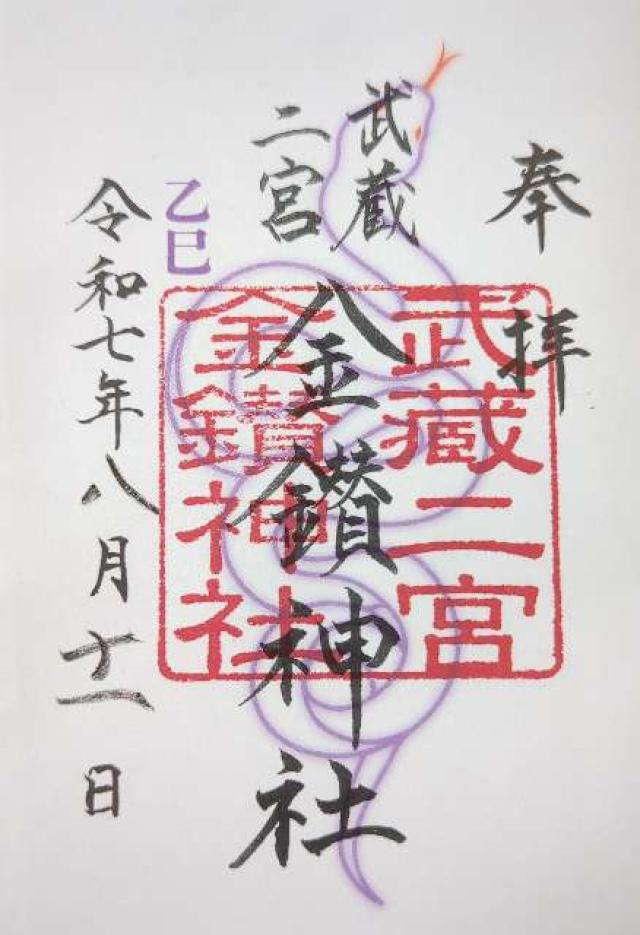 奉拝
武蔵
二宮
金鑚神社
武蔵二宮
金鑚神社
乙巳
令和七年八月十一日